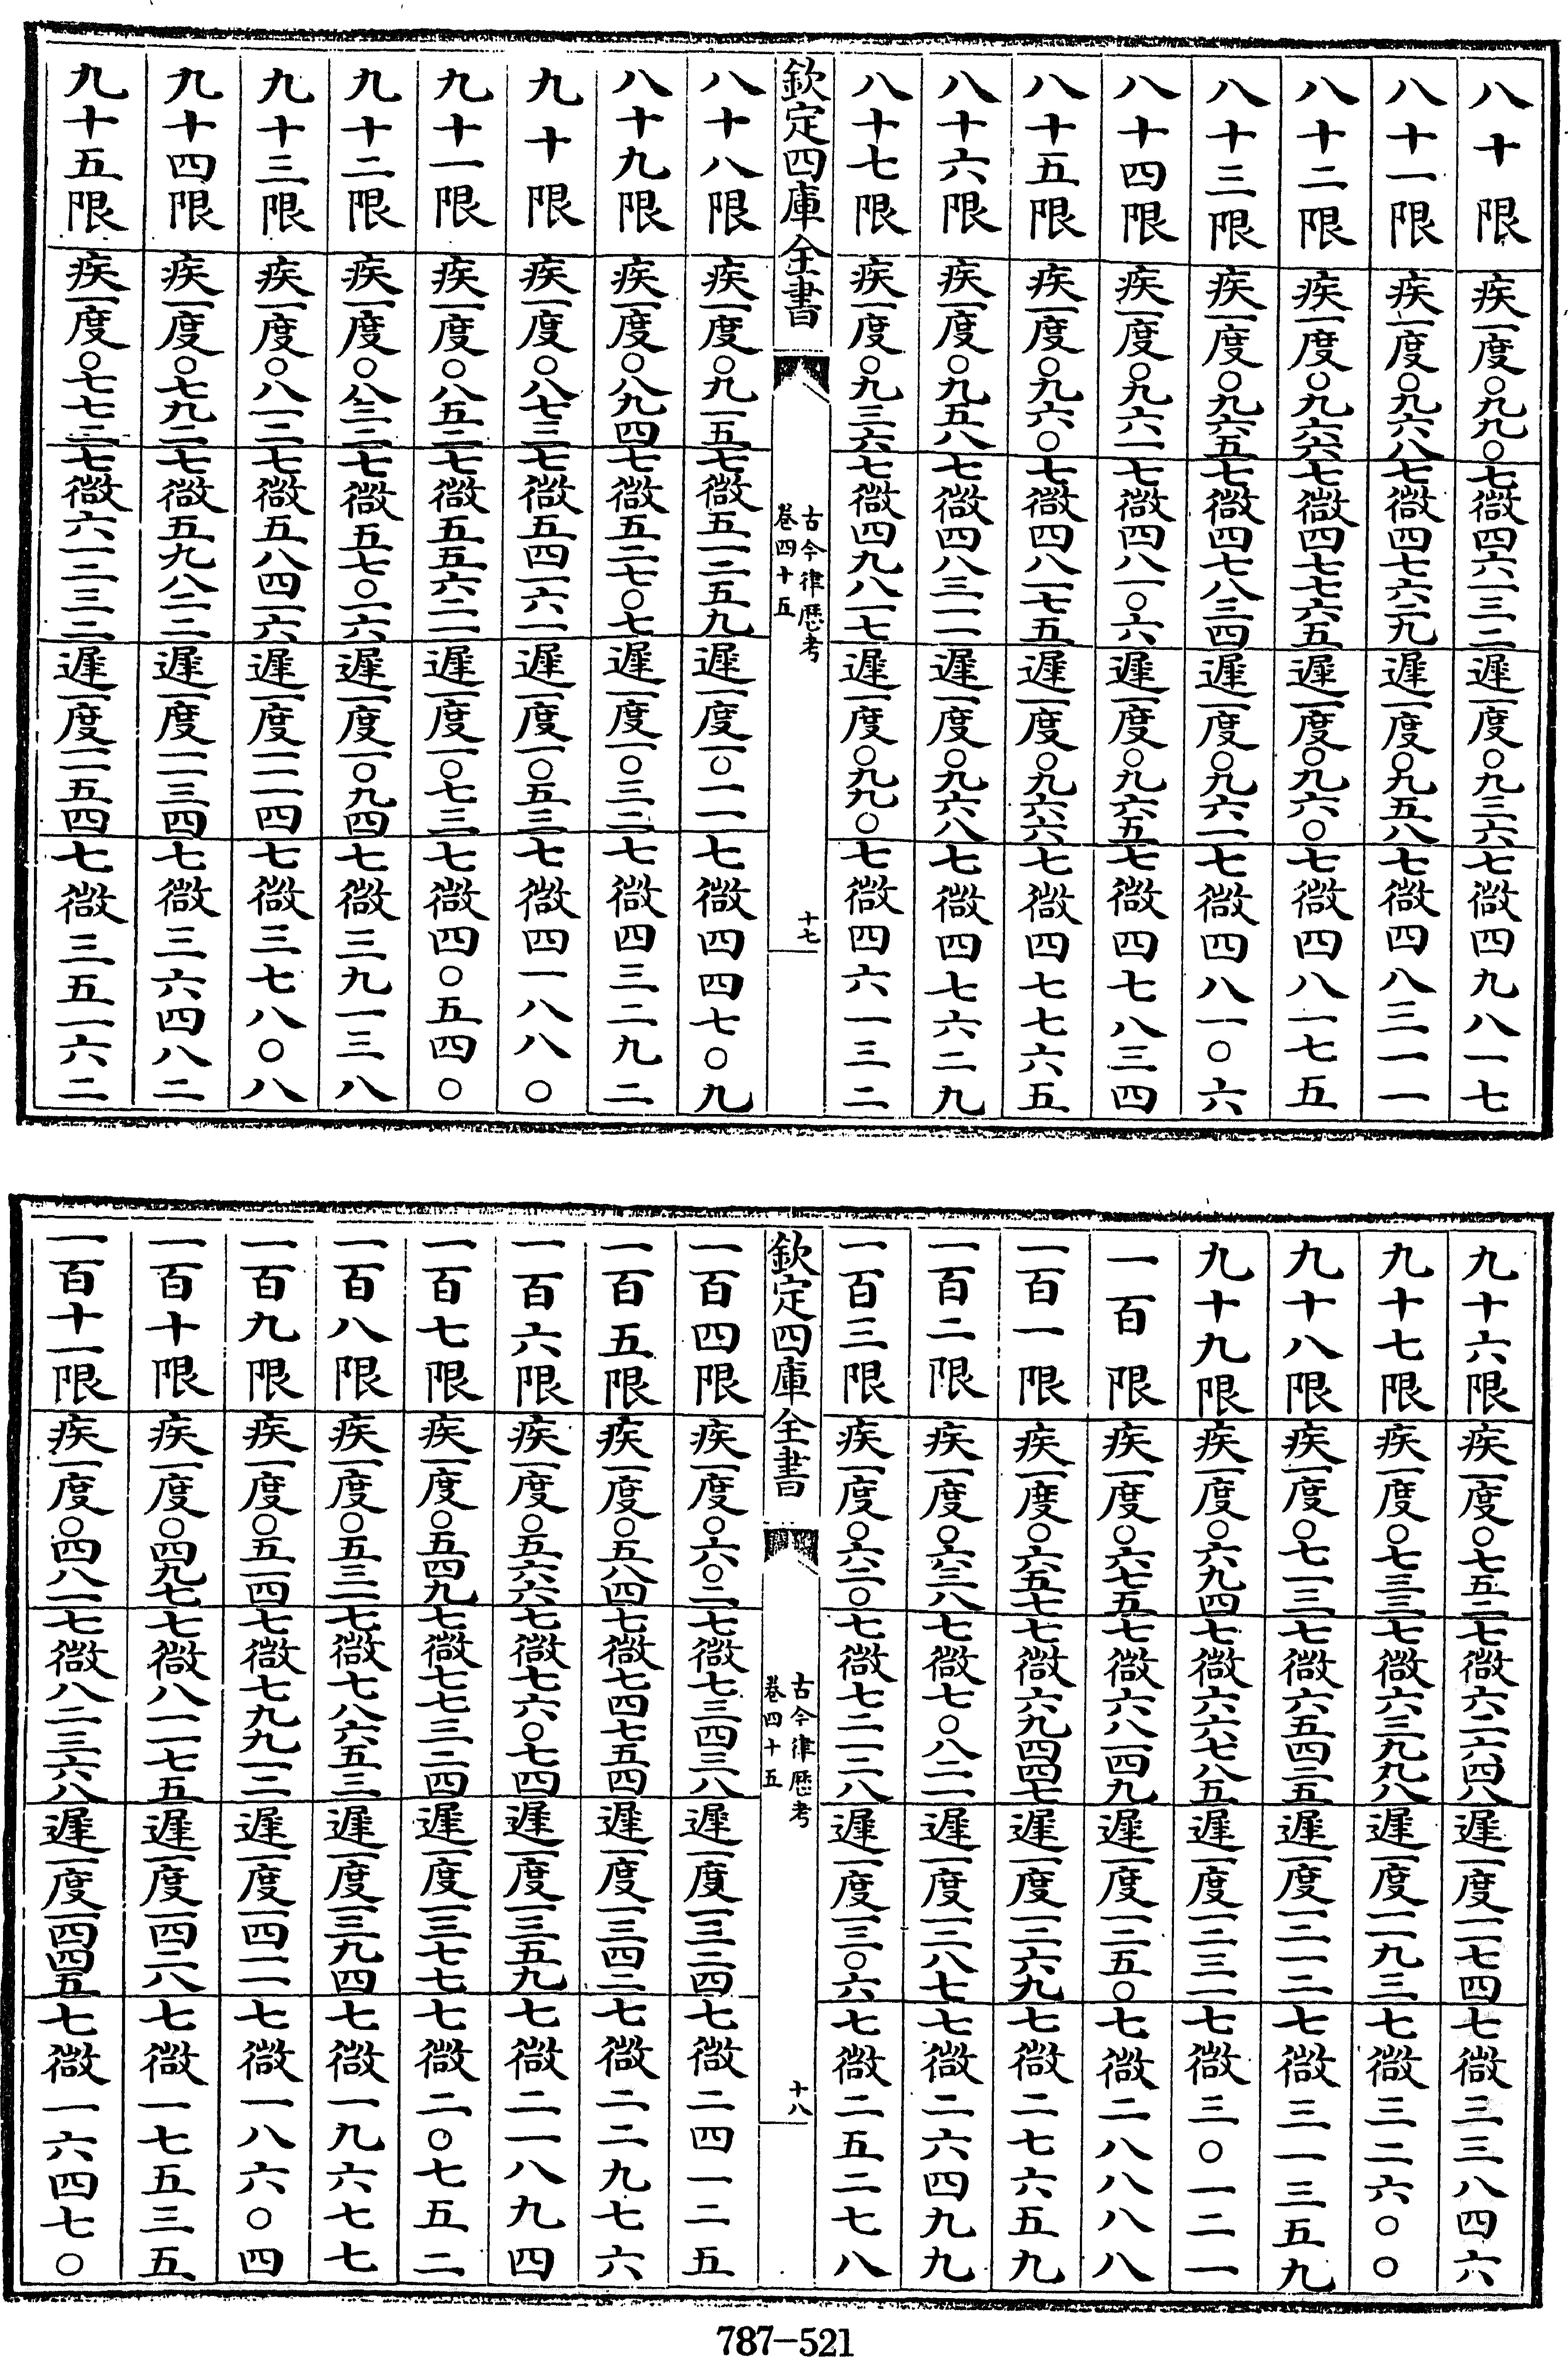 八十限 疾一度〇九九〇 七微四六一三二 遲一度〇九三六 七微四九八一七
八十一限 疾一度〇九六八 七微四七六二九 遲一度〇九五八 七微四八三一一
八十二限 疾一度〇九六六 七微四七七六五 遲一度〇九六〇 七微四八一七五
八十三限 疾一度〇九六五 七微四七八三四 遲一度〇九六一 七微四八一〇六
八十四限 疾一度〇九六一 七微四八一〇六 遲一度〇九六五 七微四七八三四
八十五限 疾一度〇九六〇 七微四八一七五 遲一度〇九六六 七微四七七六五
八十六限 疾一度〇九五八 七微四八三一一 遲一度〇九六八 七微四七六二九
八十七限 疾一度〇九三六 七微四九八一七 遲一度〇九九〇 七微四六一三二
欽定四庫全書
古今律歷考
卷四十五
十七
八十八限 疾一度〇九一五 七微五一二五九 遲一度一〇一一 七微四四七〇九
八十九限 疾一度〇八九四 七微五二七〇七 遲一度一〇三二 七微四三二九二
九十限 疾一度〇八七三 七微五四一六一 遲一度一〇五三 七微四一八八〇
九十一限 疾一度〇八五二 七微五五六二一 遲一度一〇七三 七微四〇五四〇
九十二限 疾一度〇八三二 七微五七〇一六 遲一度一〇九四 七微三九一三八
九十三限 疾一度〇八一二 七微五八四一六 遲一度一一一四 七微三七八〇八
九十四限 疾一度〇七九二 七微五九八二二 遲一度一一三四 七微三六四八二
九十五限 疾一度〇七七二 七微六一二三二 遲一度一一五四 七微三五一六二
九十六限 疾一度〇七五二 七微六二六四八 遲一度一一七四 七微三三八四六
九十七限 疾一度〇七三三 七微六三九九八 遲一度一一九三 七微三二六〇〇
九十八限 疾一度〇七一三 七微六五四二五 遲一度一二一二 七微三一三五九
九十九限 疾一度〇六九四 七微六六七八五 遲一度一二三一 七微三〇一二一
一百限 疾一度〇六七五 七微六八一四九 遲一度一二五〇 七微二八八八八
一百一限 疾一度〇六五七 七微六九四四七 遲一度一二六九 七微二七六五九
一百二限 疾一度〇六三八 七微七〇八二一 遲一度一二八七 七微二六四九九
一百三限 疾一度〇六二〇 七微七二一二八 遲一度一三〇六 七微二五二七八
欽定四庫全書
古今律歷考
卷四十五
十八
一百四限 疾一度〇六〇二 七微七三四三八 遲一度一三二四 七微二四一二五
一百五限 疾一度〇五八四 七微七四七五四 遲一度一三四二 七微二二九七六
一百六限 疾一度〇五六六 七微七六〇七四 遲一度一三五九 七微二一八九四
一百七限 疾一度〇五四九 七微七七三二四 遲一度一三七七 七微二〇七五二
一百八限 疾一度〇五三一 七微七八六五三 遲一度一三九四 七微一九六七七
一百九限 疾一度〇五一四 七微七九九一二 遲一度一四一一 七微一八六〇四
一百十限 疾一度〇四九七 七微八一一七五 遲一度一四二八 七微一七五三五
一百十一限 疾一度〇四八一 七微八二三六八 遲一度一四四五 七微一六四七〇
787-521